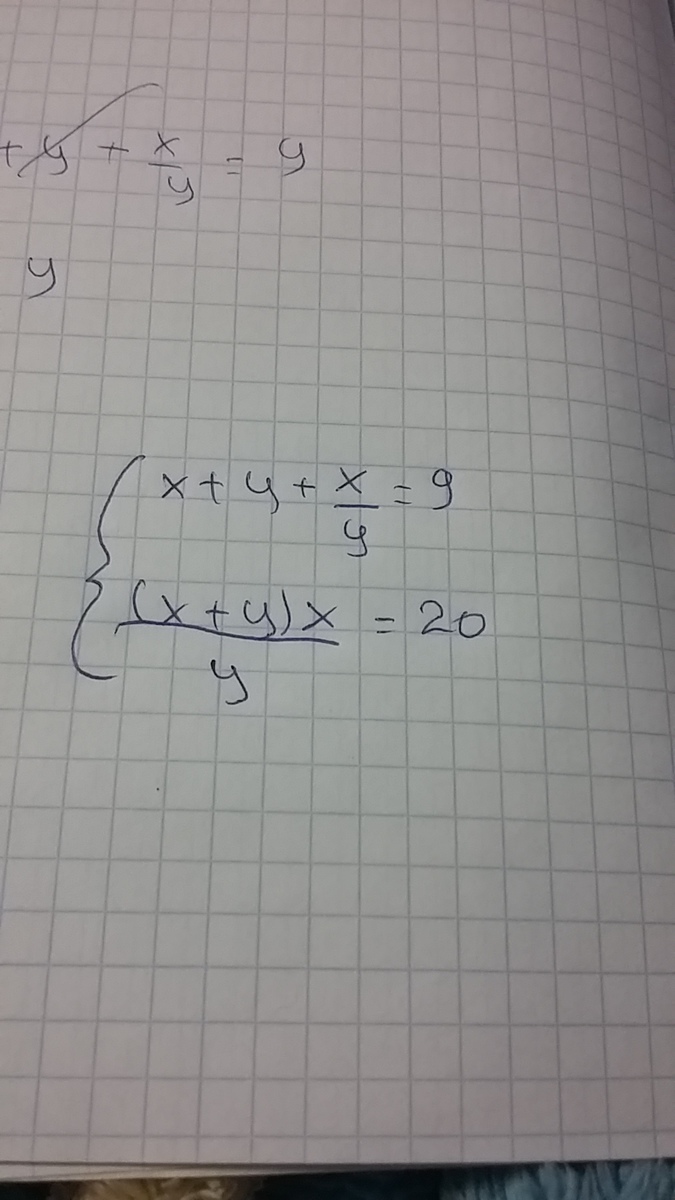 + y + x/y = y
y
{ x + y + x/y = 9
(x + y)x/y = 20